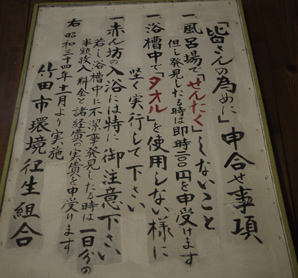 「皆さんの為めに」申合せ事項
一、風呂場で「せんたく」しないこと
但し発見したる時は即時二〇〇円を申受けます
一、浴槽中で「タオル」を使用しない様に
堅く実行して下さい
一、赤ん坊の入浴には特に御注意下さい
若し浴槽中に不潔事発見した時は一日分の
事故収入料金と諸経費の実費を申受けます
右 昭和三十四年十一月より実施
竹田市環境衛生組合